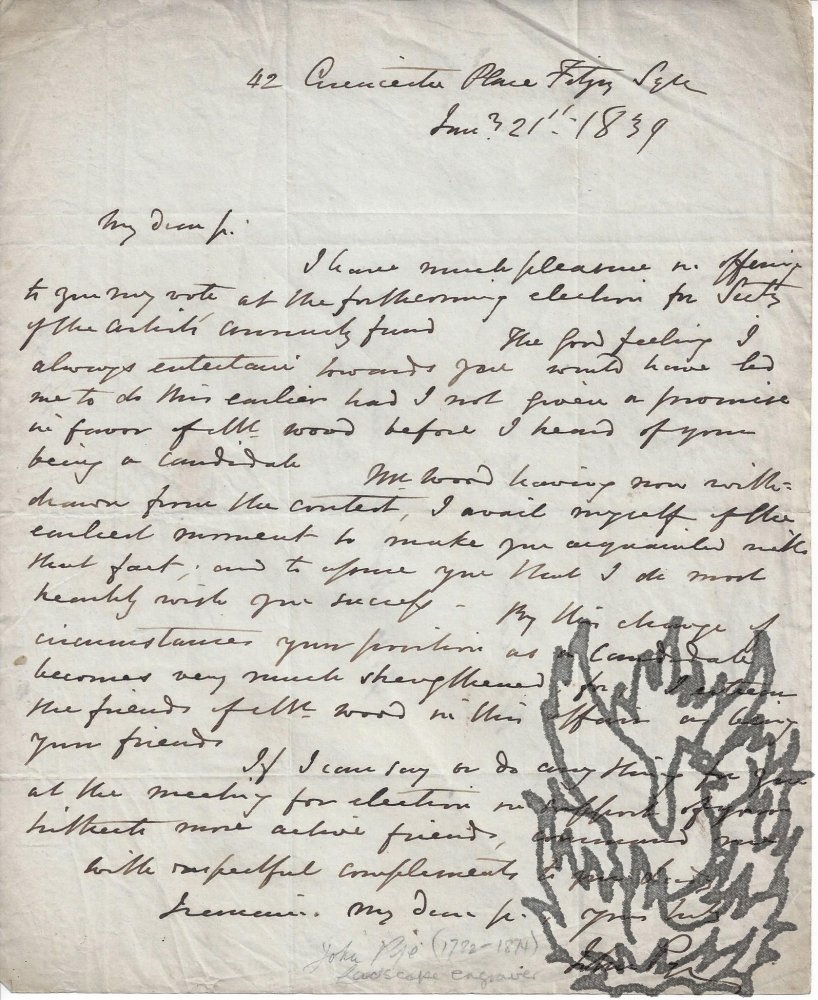 42 Cirencester Place Fitzy Sqre
Jany 21st 1839
My dear Sir.
I have much pleasure in offering
to you my vote at the forthcoming election for Secty
of the Artists' Annuity fund The good feeling I
always entertain towards you would have led
me to do this earlier had I not given a promise
in favor of Mr. Wood before I heard of your
being a Candidate
Mr Wood having now with=
drawn from the contest, I avail myself of the
earliest moment to make you acquainted with
that fact; and to assure you that I do most
heartily wish you success - By this change of
circumstances your position as a Candidate
becomes very much strengthened for I esteem
the friends of Mr. Wood in this affair as being
your friends
If I can say or do any thing for you
at the meeting for election in support of your
hitherto more active friends, command me
with respectful compliments to
I remain. My dear Sir, yours truly
John Pye
John Pye (1782-1874)
Landscape engraver